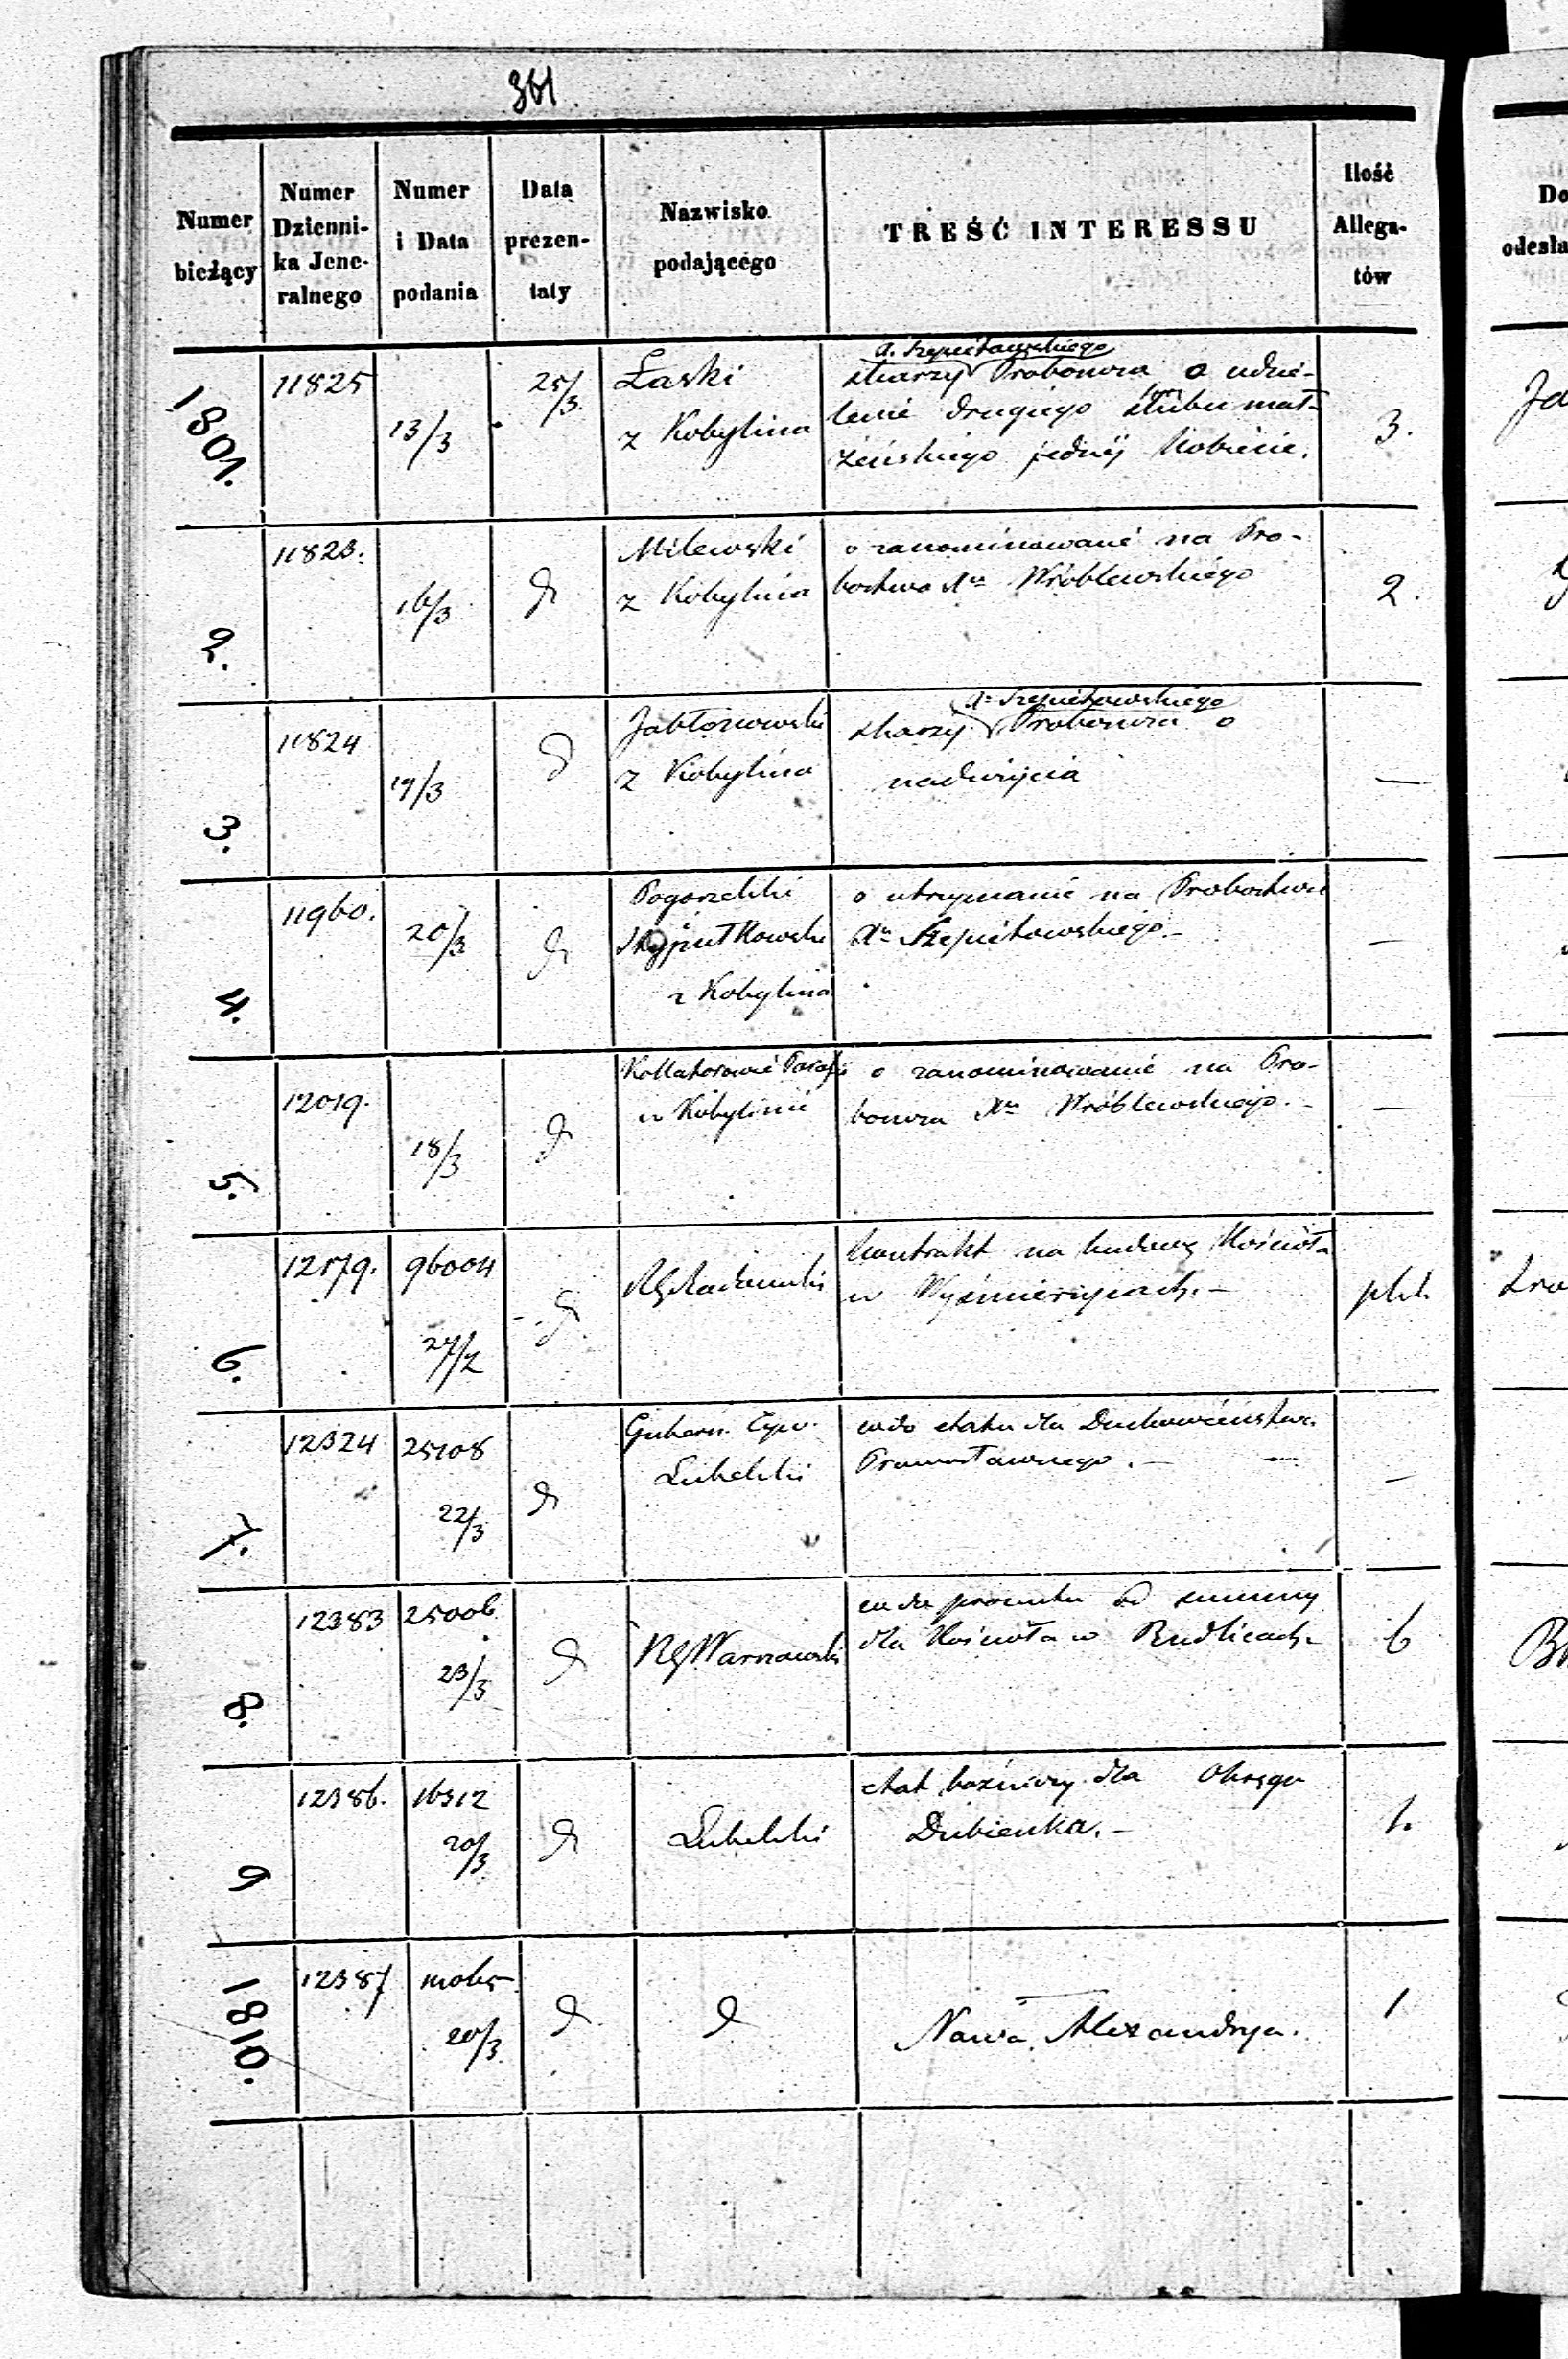 361.
Numer bieżący
Numer Dzienni-
ka Jene-
ralnego
Numer
i Data
podania
Data
prezen-
taty
Nazwisko
podającego
TREŚĆ INTERESSU
Ilość
Allega-
tów
Do
odesła
1801.
11825
13/3
25/3.
Łaski
z Kobylina
X. Szepietowskiego
skarzy Proboszcza o udzie-
lenie drugiego ślubu mał-
żeńskiego jednéj Kobiécie.
3.
2.
11823.
16/3
d
Milewski
z Kobylina
o zanominowanié na Pro-
bostwo Xa Wróblewskiego
2.
3.
11824
19/3
d
Jabłonowski
z Kobylina
Xa Szepietowskiego
skarzy Proboszcza o
nadużycia
—
4.
11960.
20/3
d
Pogorzelski
i
z Kobylina
o utrzymanie na Probostwie
Xa Szepietowskiego.—
—
5.
12019.
18/3
d
Kollatorowié Parafii
w Kobylinie
o zanominowanié na Pro-
boszcza Xa Wróblewskiego.—
—
6.
12179.
96004
27/2
d
RG Radomski
kontrakt na budowę Kościoła
w Wyśmierzycach.—
plik
7.
12324
25108
22/3
d
Gubern. Cyw.
Lubelski
wzdo etatu dla Duchowieństwa
Prawosławnego.—
—
8.
12383
25006
23/3
d
RG Warszawski
wzdo procentu od summy
dla Kościoła w
6
9
12386.
16312
20/3
d
Lubelski
etat bożniczy dla Okręgu
Dubienka.—
1.
1810.
12387
20/3
d
d
—
Nowa Alexandrya.
1